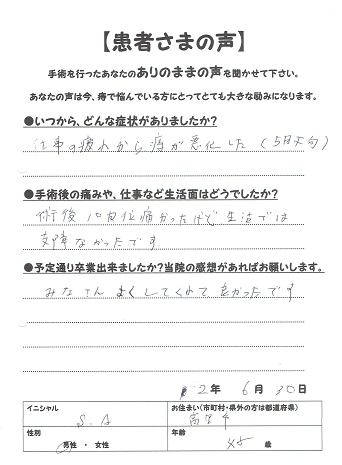 【患者さまの声】
手術を行ったあなたのありのままの声を聞かせて下さい。
あなたの声は今、痔で悩んでいる方にとってとても大きな励みになります。
●いつから、どんな症状がありましたか?
仕事の疲れから痔が悪化した(5月下旬)
●手術後の痛みや、仕事など生活面はどうでしたか?
術後 位痛かったけど生活では
支障なかったです
●予定通り卒業出来ましたか?当院の感想があればお願いします。
みなさんよくしてくれて良かったです
2年 6月 30日
イニシャル お住まい(市町村・県外の方は都道府県)
S.A
性別 年齢
男性 ・ 女性 45 歳